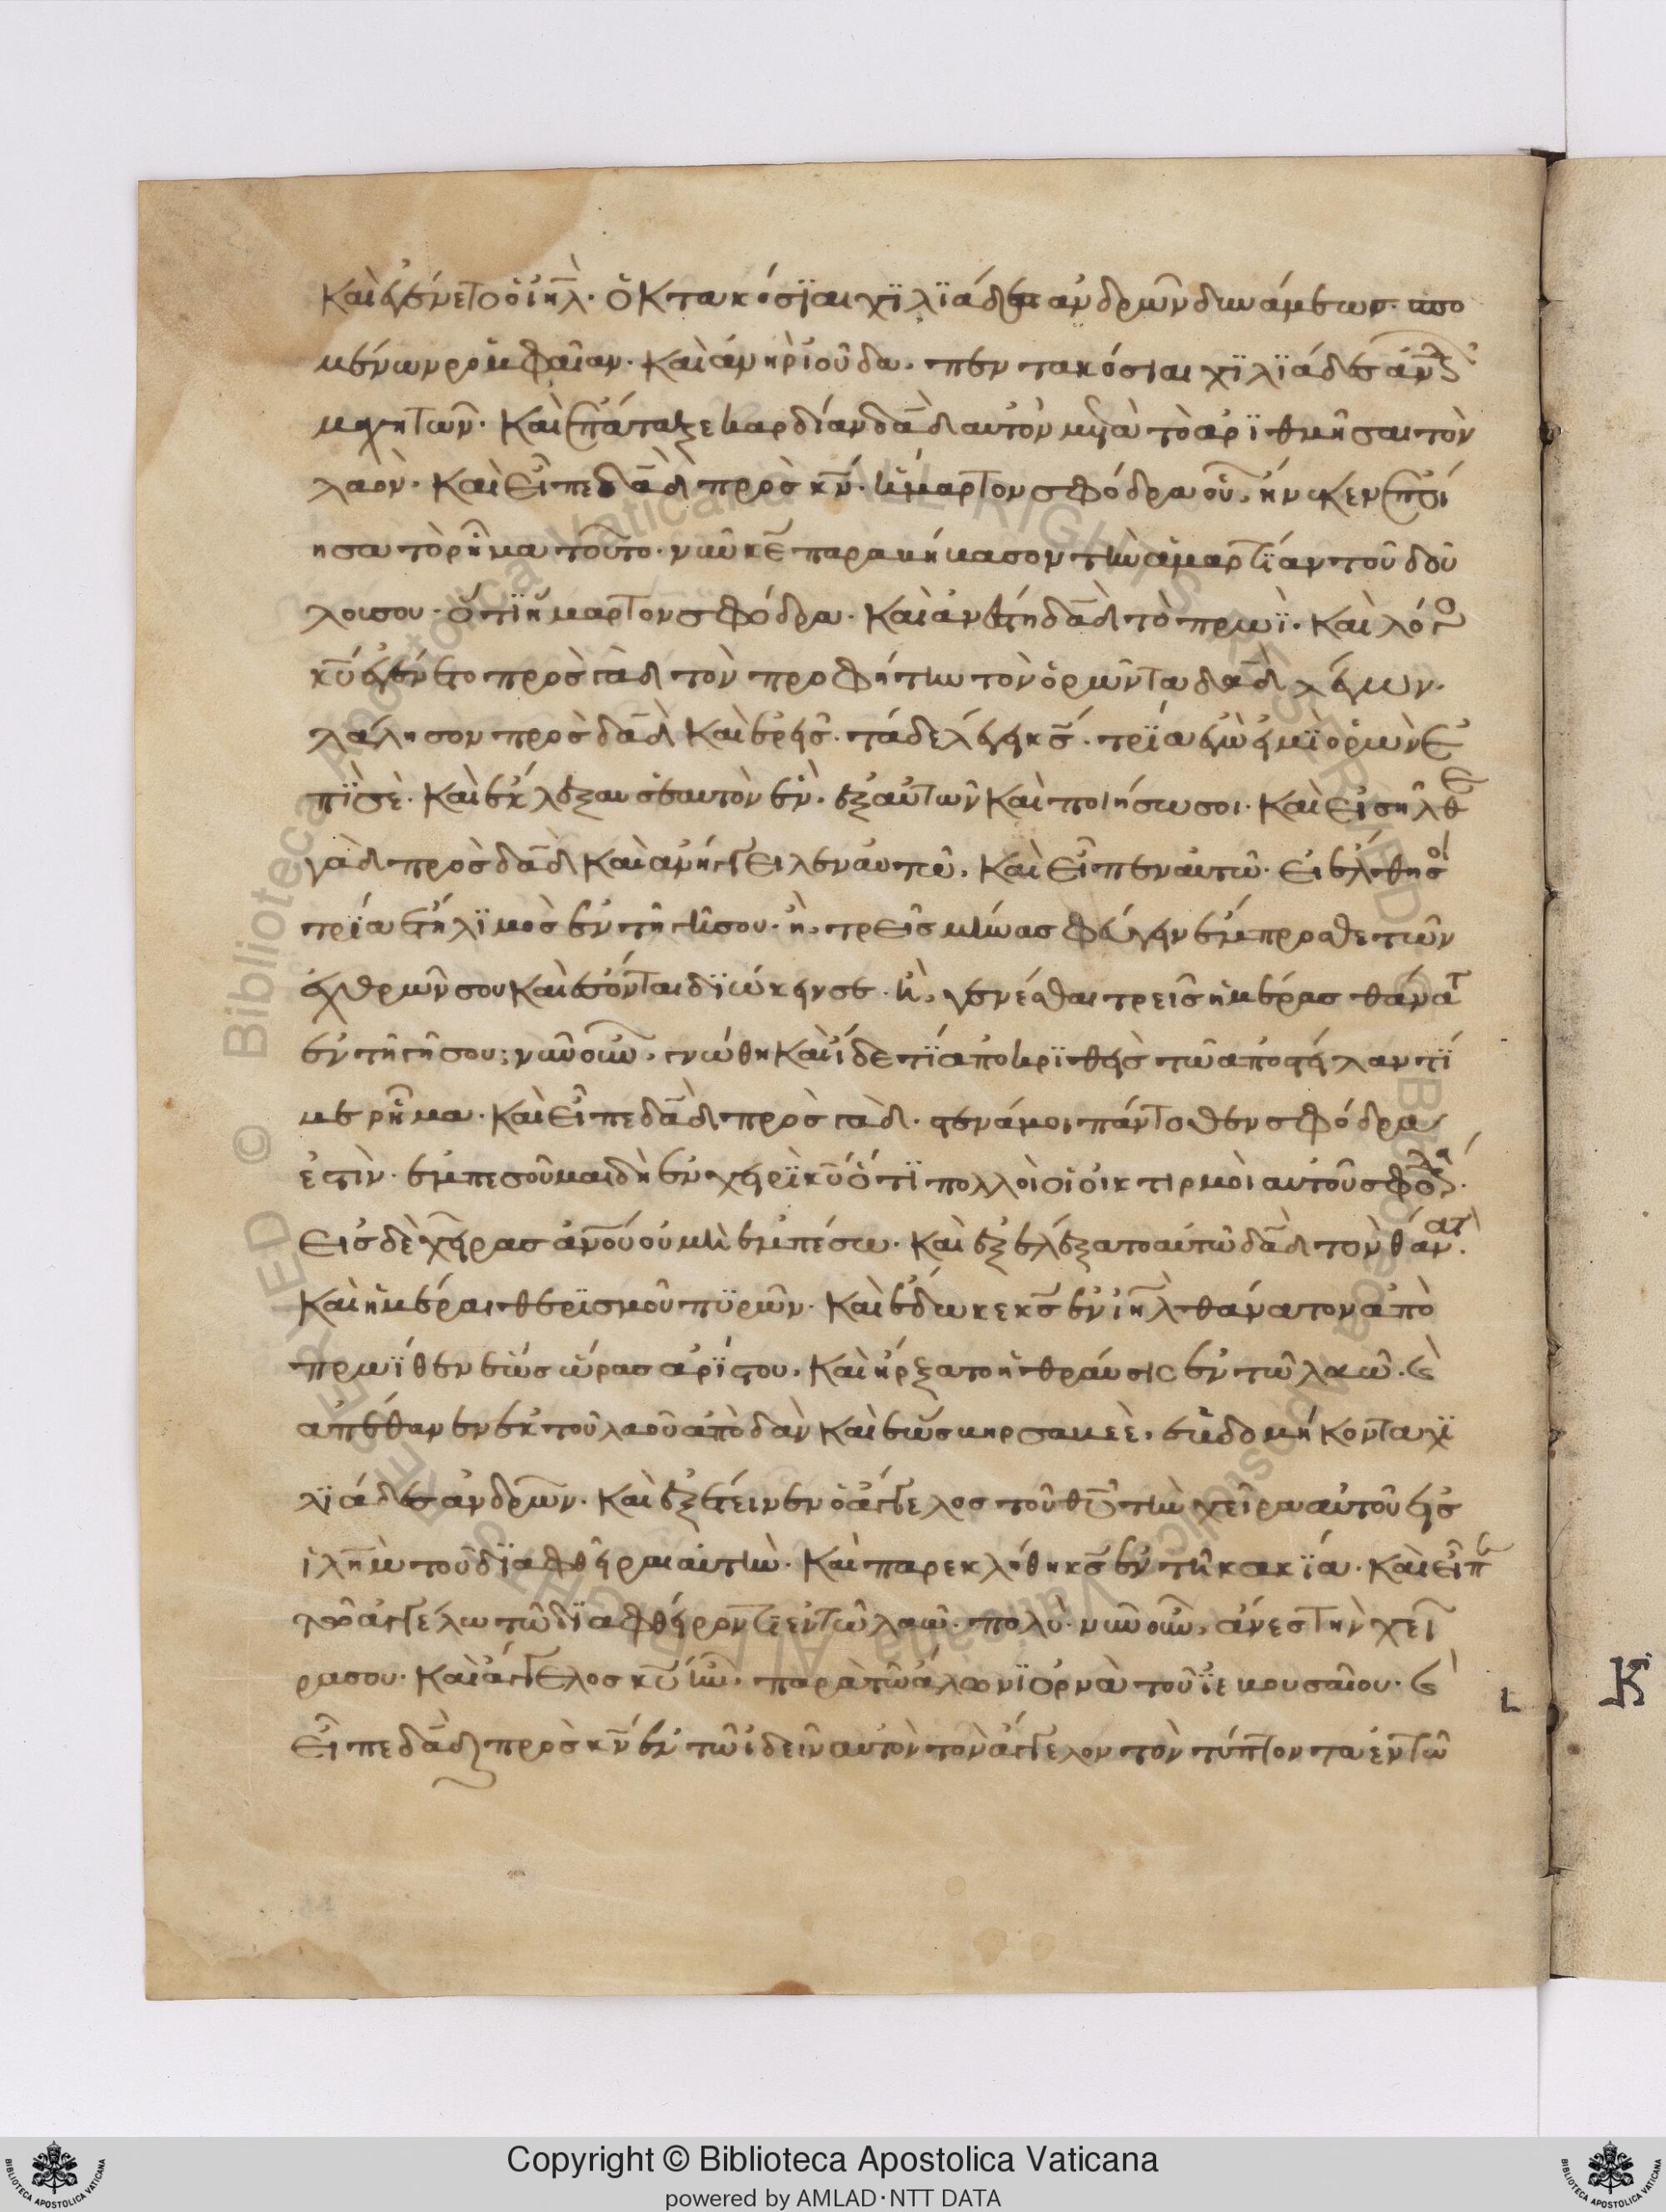 Καὶ ἐγένετο ὁ ιηλ· ὀκτακόσϊαι χϊλϊάδες ἀνδρῶν δυνάμεως· σπο
μένων ρομφαῖαν· Καὶ ἀνὴρ ἰοῦδα, πεντακόσιαι χϊλϊάδες ἀνδ
μαχητῶν· Καὶ ἐπάταξε καρδίαν δαδ αυτὸν μετὰ τὸ ἀρϊθμῆσαι τὸν
λαὸν· Καὶ εἶπε δαδ πρὸς κν· ἥμαρτον σφόδρα οὗ, ἥνικεν ἐποί
ησα τὸ ρῆμα τοῦτο· νῦν κε παραμήκασον τὴν ἁμαρτϊαν τοῦ δού
λου σου· ὅτϊ ἥμαρτον σφόδρα· Καὶ ἀνέστη δαδ τὸ πρωῒ· Καὶ λόγο
κυ ἐγένετο πρὸς γὰδ τὸν προφήτην τὸν ὁρῶντα δαδ λέγων·
λάλησον πρὸς δαδ καὶ ἐρεῖς· τάδε λέγει κς· τρΐα ἐγὼ εἰμὶ ὁρῶν ἐ
πΐ σὲ· Καὶ ἔκλεξαι σεαυτὸν ἓν ἐξ αὐτῶν καὶ ποιήσω σοι· Καὶ εἰσῆλθε
γὰδ πρὸς δαδ καὶ ἀνήγγειλεν αυτῶ, Καὶ εἶπεν αυτῶ· εἰ ἔλθη σοι
τρία ἔτη λϊμὸς ἐν τῆ γῆ σου· ἢ, τρεῖς μῆνας φεύγειν ἔμπροσθε τῶν
ἐχθρῶν σου καὶ ἔσονται διώκειν σε· ἢ, γενέσθαι τρεῖς ἡμέρας θάνατ
ἐν τῆ γῆ σου; νῦν οὖν, γνῶθη καὶ ἴδε τϊ ἀποκρϊθεὶς τῶ ἀποστείλαντϊ
με ρῆμα· Καὶ εἶπε δαδ πρὸς γὰδ· στενά μοι πάντοθεν σφόδρα
ἐστὶν· ἐμπεσοῦμαι δὴ ἐν χειρὶ κυ ὅτϊ πολλοὶ οἱ οἰκτιρμοὶ αυτοῦ σφόδρα·
Εἰς δὲ χεῖρας ανου οὐ μὴ ἐμπέσω· Καὶ ἐξελέξατο αὐτῶ δαδ τὸν θάνατ·
Καὶ ἡμέραι θερϊσμοῦ πϋρῶν· Καὶ ἔδωκε κς ἐν ιηλ θάνατον ἀπὸ
πρωΐθεν ἕως ὥρας ἀρΐστου· Καὶ ἤρξατο ἡ θραῦσις ἐν τῶ λαῶ· Ϛ
ἀπέθανεν ἐκ τοῦ λαοῦ ἀπὸ δὰν καὶ ἕως κηρσαμεὲ, ἑβδομήκοντα χϊ
λϊάδες ἀνδρῶν· Καὶ ἐξέτεινεν ὁ ἄγγελος τοῦ θυ τὴν χεῖρα αὐτοῦ εἰς
ιλημ τοῦ διαφθεῖραι αὐτὴν· Καὶ παρεκλήθη κς ἐν τῆ κακία· Καὶ εἶπε
τῶ ἀγγέλω τῶ δϊαφθείροντϊ ἐν τῶ λαῶ· πολὺ· νῦν οὖν, ἄνες τὴν χεῖ
ρα σου· Καὶ ἄγγελος κυ ἦν, παρὰ τῶ ἅλωνϊ ὀρνὰ τοῦ ἰεκουσαῖου· Ϛ
Εἶπε δαδ πρὸς κν ἐν τῶ ἰδεῖν αυτὸν τὸν ἄγγελον τὸν τύπτοντα ἐν τῶ
K
Copyright © Biblioteca Apostolica Vaticana
powered by AMLAD·NTT DATA